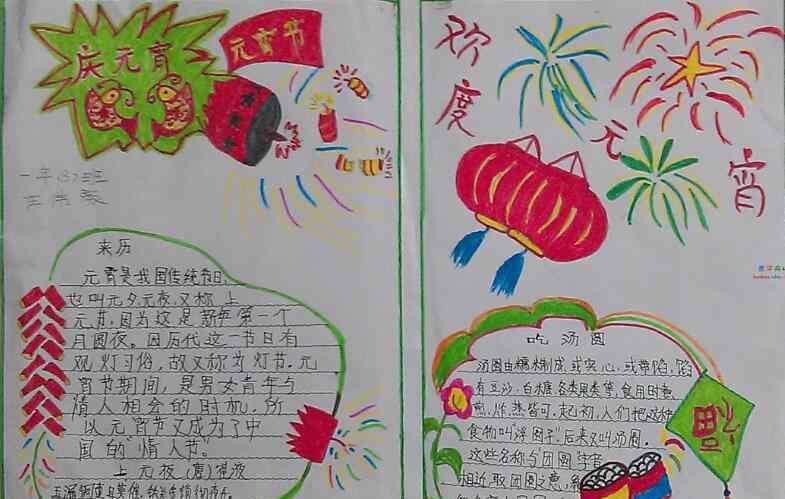 庆元宵
元宵节
一年(3)班
来历
元宵是我国传统节日,
也叫元夕、元夜,又称上
元节,因为这是新年第一个
月圆夜。因历代这一节日有
观灯习俗,故又称为灯节。元
宵节期间,是男女青年与
情人相会的时机,所
以元宵节又成为了中
国的“情人节”。
上元夜(唐)崔液
玉漏
欢度
元
宵
吃汤圆
汤圆由糯米制成,或实心,或带馅。馅
有豆沙、白糖、各类果类等,食用时煮、
煎、炸、蒸皆可。起初,人们把这种
食物叫“浮圆子”,后来又叫汤圆。
这些名称与“团圆”字音
相近,取团圆之意,
福